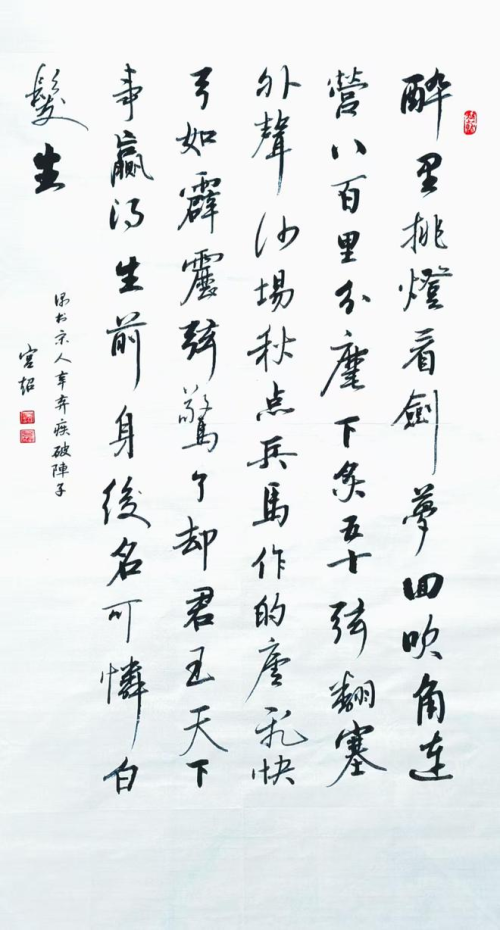 醉里挑燈看劍夢回吹角连
營八百里分麾下炙五十弦翻塞
外聲沙場秋点兵馬作的盧飛快
弓如霹靂弦驚了却君王天下
事贏得生前身後名可憐白
髮生
书宋人辛弃疾破陣子
宫